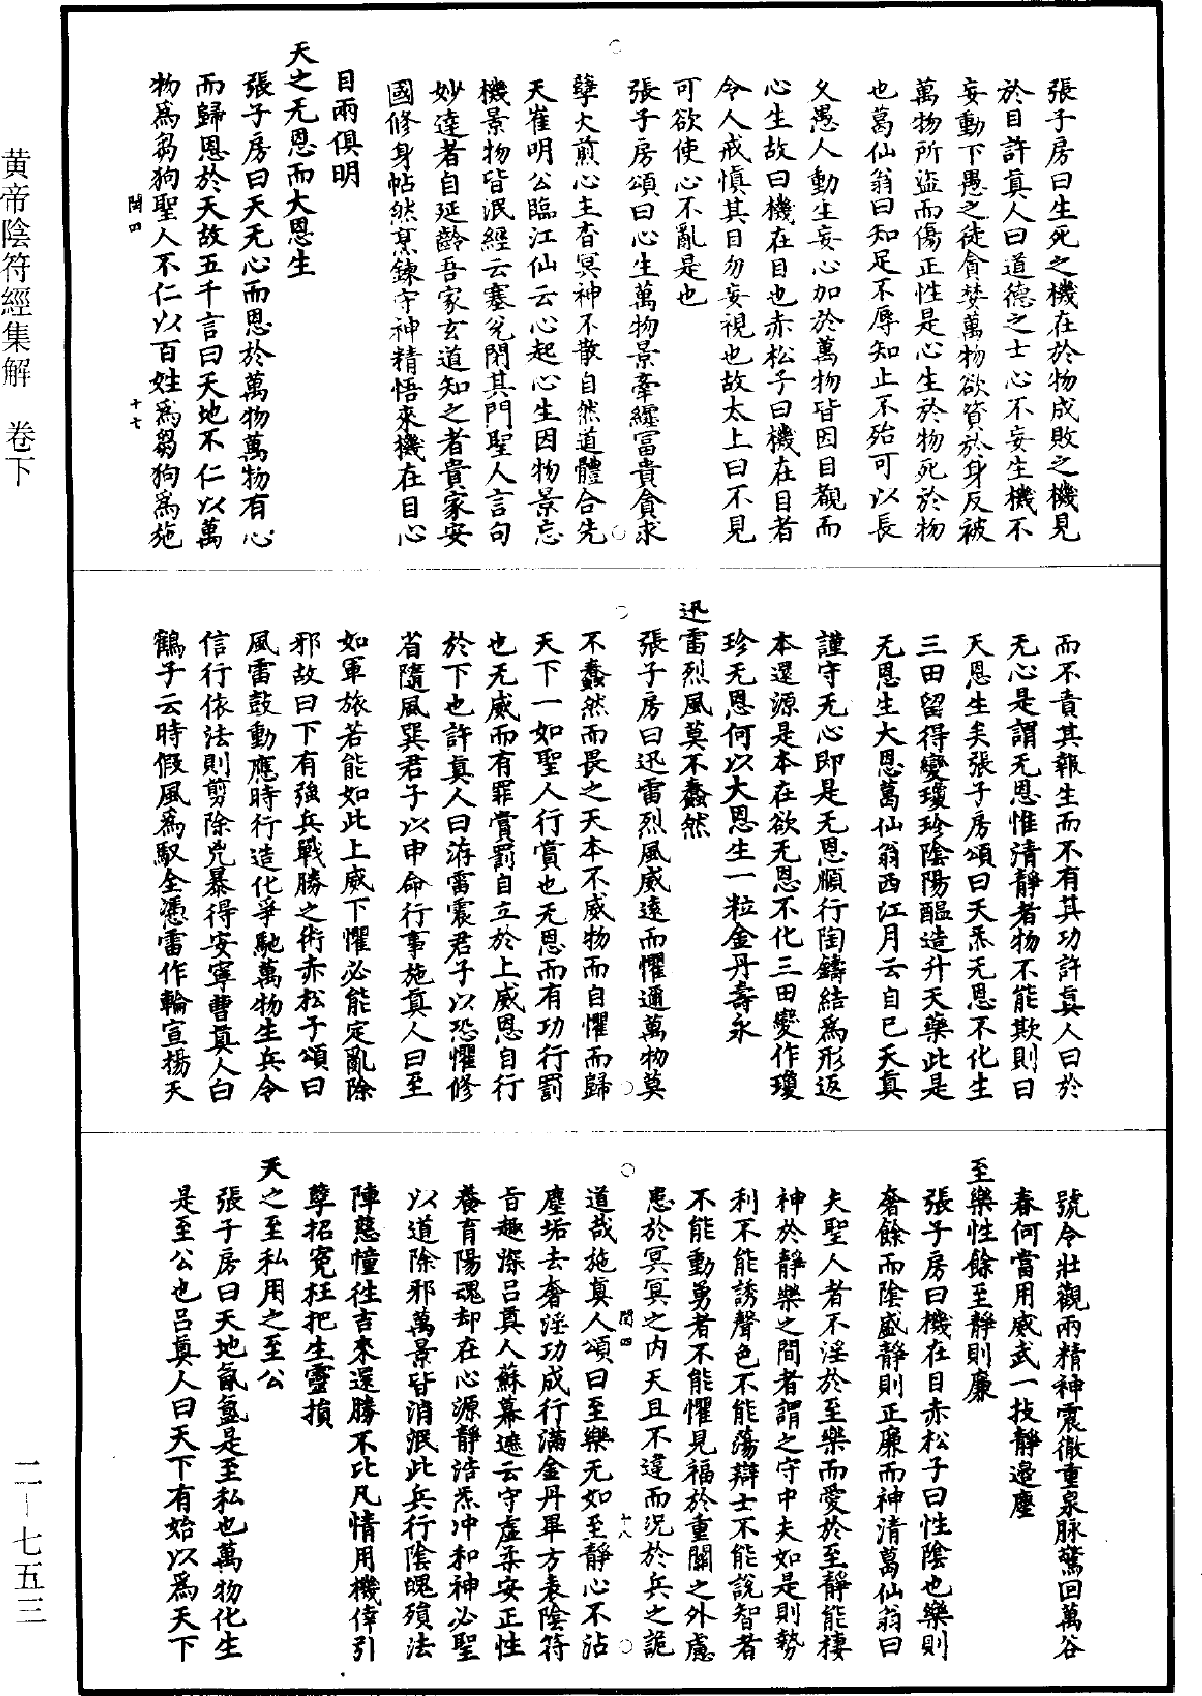 黄帝陰符經集解　卷下
張子房曰生死之機在於物成敗之機見
於目許真人曰道德之士心不妄生機不
妄動下愚之徒貪婪萬物欲資於身反被
萬物所盜而傷正性是心生於物死於物
也葛仙翁曰知足不辱知止不殆可以長
久愚人動生妄心加於萬物皆因目覩而
心生故曰機在目也赤松子曰機在目者
令人戒慎其目勿妄視也故太上曰不見
可欲使心不亂是也
張子房頌曰心生萬物景牽纏富貴貪求
孽大煎心主杳冥神不散自然道體合先
天崔明公臨江仙云心起心生因物景忘
機景物皆泯經云塞兌閉其門聖人言句
妙達者自延齡吾家玄道知之者貴家安
國修身帖然烹鍊守神精悟來機在目心
目兩俱明
天之无恩而大恩生
張子房曰天无心而恩於萬物萬物有心
而歸恩於天故五千言曰天地不仁以萬
物爲芻狗聖人不仁以百姓爲芻狗爲施
閏四　十七
而不責其報生而不有其功許真人曰於
无心是謂无恩惟清靜者物不能欺則曰
大恩生矣張子房頌曰天炁无恩不化生
三田留得變瓊珍陰陽醞造升天藥此是
无恩生大恩葛仙翁西江月云自已天真
謹守无心即是无恩順行陶鑄結爲形返
本還源是本在欲无恩不化三田變作瓊
珍无恩何以大恩生一粒金丹壽永
迅雷烈風莫不蠢然
張子房曰迅雷烈風威遠而懼邇萬物莫
不蠢然而畏之天本不威物而自懼而歸
天下一如聖人行賞也无恩而有功行罰
也无威而有罪賞罰自立於上威恩自行
於下也許真人曰洊雷震君子以恐懼修
省隨風巽君子以申命行事施真人曰至
如軍旅若能如此上威下懼必能定亂除
邪故曰下有強兵戰勝之術赤松子頌曰
風雷鼓動應時行造化爭馳萬物生兵令
信行依法則剪除兇暴得安寧曹真人白
鶴子云時假風爲馭全憑雷作輪宣揚天
號令壯觀雨精神震徹重泉脉驚回萬谷
春何當用威武一技靜邊塵
至樂性餘至靜則廉
張子房曰機在目赤松子曰性陰也樂則
奢餘而陰盛靜則正廉而神清葛仙翁曰
夫聖人者不淫於至樂而愛於至靜能棲
神於靜樂之間者謂之守中夫如是則勢
利不能誘聲色不能蕩辯士不能說智者
不能動勇者不能懼見福於重關之外慮
患於冥冥之内天且不違而況於兵之詭
閏四　十八
道哉施真人頌曰至樂无如至靜心不沾
塵垢去奢淫功成行滿金丹畢方表陰符
旨趣深呂真人蘇幕遮云守虛柔安正性
養育陽魂却在心源靜浩炁冲和神必聖
以道除邪萬景皆消泯此兵行陰魄殞法
陣慈幢徃吉來還勝不比凡情用機倖引
孽招寃枉把生靈損
天之至私用之至公
張子房曰天地氤氳是至私也萬物化生
是至公也呂真人曰天下有始以爲天下
二—七五三